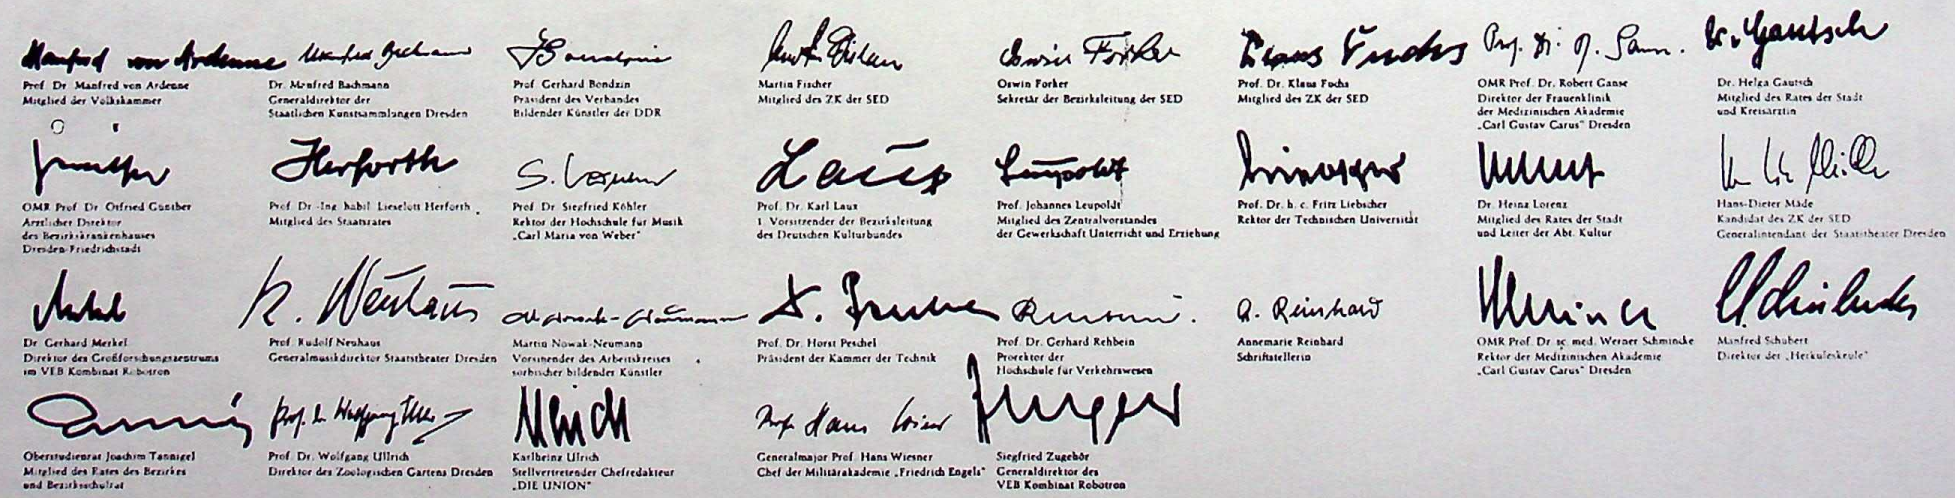 Manfred von Ardenne
Prof. Dr. Manfred von Ardenne
Mitglied der Volkskammer
Manfred Bachmann
Dr. Manfred Bachmann
Generaldirektor der
Staatlichen Kunstsammlungen Dresden
Prof. Gerhard Bondzin
Präsident des Verbandes
Bildender Künstler der DDR
Martin Fischer
Mitglied des ZK der SED
Oswin Forker
Oswin Forker
Sekretär der Bezirksleitung der SED
Klaus Fuchs
Prof. Dr. Klaus Fuchs
Mitglied des ZK der SED
Prof. Dr. R. Ganse.
OMR Prof. Dr. Robert Ganse
Direktor der Frauenklinik
der Medizinischen Akademie
„Carl Gustav Carus“ Dresden
Dr. Gautsch
Dr. Helga Gautsch
Mitglied des Rates der Stadt
und Kreisärztin
Günther
OMR Prof. Dr. Otfried Günther
Ärztlicher Direktor
des Bezirkskrankenhauses
Dresden-Friedrichstadt
Herforth
Prof. Dr.-Ing. habil. Lieselott Herforth
Mitglied des Staatsrates
Prof. Dr. Siegfried Köhler
Rektor der Hochschule für Musik
„Carl Maria von Weber“
Laux
Prof. Dr. Karl Laux
1. Vorsitzender der Bezirksleitung
des Deutschen Kulturbundes
Leupoldt
Prof. Johannes Leupoldt
Mitglied des Zentralvorstandes
der Gewerkschaft Unterricht und Erziehung
Liebscher
Prof. Dr. h. c. Fritz Liebscher
Rektor der Technischen Universität
Dr. Heinz Lorenz
Mitglied des Rates der Stadt
und Leiter der Abt. Kultur
Hans-Dieter Mäde
Kandidat des ZK der SED
Generalintendant der Staatstheater Dresden
Merkel
Dr. Gerhard Merkel
Direktor des Großforschungszentrums
im VEB Kombinat Robotron
R. Neuhaus
Prof. Rudolf Neuhaus
Generalmusikdirektor Staatstheater Dresden
Martin Nowak-Neumann
Vorsitzender des Arbeitskreises
sorbischer bildender Künstler
Prof. Dr. Horst Peschel
Präsident der Kammer der Technik
Prof. Dr. Gerhard Rehbein
Prorektor der
Hochschule für Verkehrswesen
A. Reinhard
Annemarie Reinhard
Schriftstellerin
OMR Prof. Dr. sc. med. Werner Schmincke
Rektor der Medizinischen Akademie
„Carl Gustav Carus“ Dresden
Manfred Schubert
Direktor der „Herkuleskeule“
Oberstudienrat Joachim Tannigel
Mitglied des Rates des Bezirkes
und Bezirksschulrat
Prof. Dr. Wolfgang Ullrich
Prof. Dr. Wolfgang Ullrich
Direktor des Zoologischen Gartens Dresden
Ulrich
Karlheinz Ulrich
Stellvertretender Chefredakteur
„DIE UNION“
Prof. Hans Wiesner
Generalmajor Prof. Hans Wiesner
Chef der Militärakademie „Friedrich Engels“
Siegfried Zugehör
Generaldirektor des
VEB Kombinat Robotron